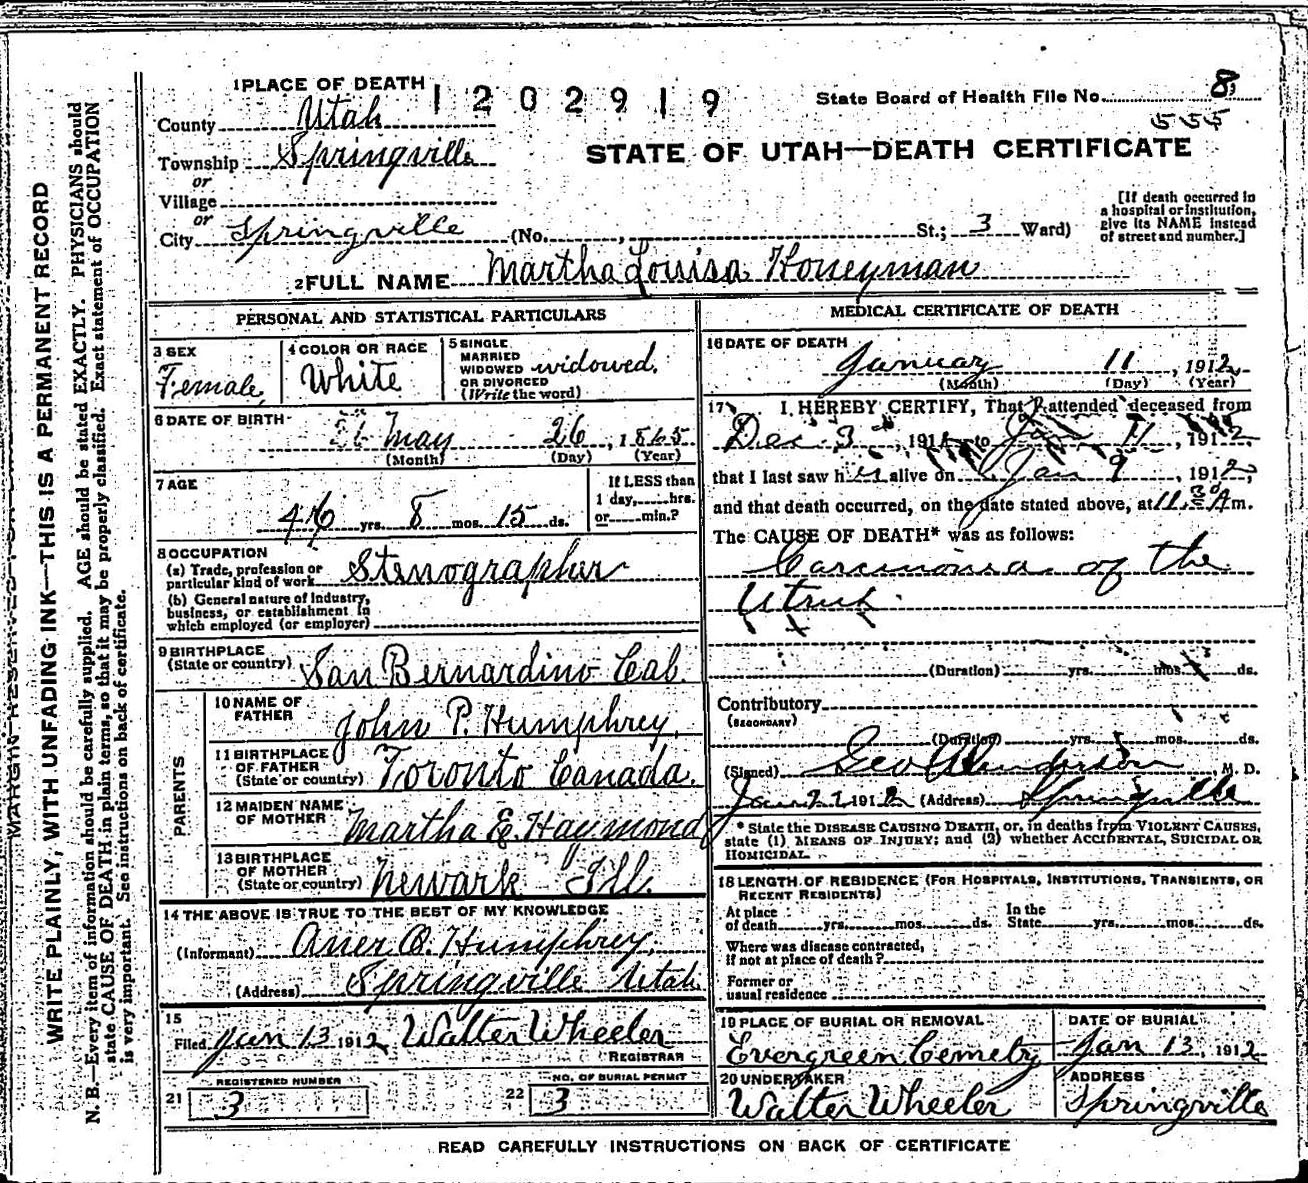 1 PLACE OF DEATH
1 2 0 2 9 1 9
State Board of Health File No. 8
555
County Utah
Township Springville
or
Village
or
City Springville (No. , St.; 3 Ward)
STATE OF UTAH—DEATH CERTIFICATE
[If death occurred in
a hospital or institution,
give its NAME instead
of street and number.]
2 FULL NAME Martha Louisa Honeyman
PERSONAL AND STATISTICAL PARTICULARS
3 SEX
Female
4 COLOR OR RACE
White
5 SINGLE
MARRIED
WIDOWED
OR DIVORCED
(Write the word)
widowed.
6 DATE OF BIRTH
26 May 26, 1865
(Month) (Day) (Year)
7 AGE
46 yrs. 8 mos. 15 ds.
If LESS than
1 day, hrs.
or min.?
8 OCCUPATION
(a) Trade, profession or
particular kind of work Stenographer
(b) General nature of industry,
business, or establishment in
which employed (or employer)
9 BIRTHPLACE
(State or country) San Bernardino Cal.
PARENTS
10 NAME OF
FATHER
John P. Humphrey,
11 BIRTHPLACE
OF FATHER
(State or country) Toronto Canada.
12 MAIDEN NAME
OF MOTHER
Martha E. Haymond
13 BIRTHPLACE
OF MOTHER
(State or country) Newark Ill.
14 THE ABOVE IS TRUE TO THE BEST OF MY KNOWLEDGE
(Informant) Humphrey.
(Address) Springville Utah
15
Filed Jan 13 1912 Walter Wheeler
REGISTRAR
REGISTERED NUMBER
21 3
NO. OF BURIAL PERMIT
22 3
MEDICAL CERTIFICATE OF DEATH
16 DATE OF DEATH
January 11, 1912
(Month) (Day) (Year)
17 I HEREBY CERTIFY, That I attended deceased from
Dec. 3, 1911, to Jan 11, 1912
that I last saw her alive on Jan 9, 1912,
and that death occurred, on the date stated above, at 11.30 A m.
The CAUSE OF DEATH* was as follows:
Carcinonia of the
Utrus.
(Duration) yrs. mos. ds.
Contributory
(SECONDARY)
(Duration) yrs. mos. ds.
(Signed) Geo Anderson, M. D.
Jan 1912 (Address) Springville
* State the DISEASE CAUSING DEATH, or, in deaths from VIOLENT CAUSES,
state (1) MEANS OF INJURY; and (2) whether ACCIDENTAL, SUICIDAL OR
HOMICIDAL.
18 LENGTH OF RESIDENCE (FOR HOSPITALS, INSTITUTIONS, TRANSIENTS, OR
RECENT RESIDENTS)
At place
of death yrs. mos. ds.
In the
State yrs. mos. ds.
Where was disease contracted,
if not at place of death?
Former or
usual residence
19 PLACE OF BURIAL OR REMOVAL
Evergreen Cemetry
DATE OF BURIAL
Jan 13, 1912
20 UNDERTAKER
Walter Wheeler
ADDRESS
Springville
READ CAREFULLY INSTRUCTIONS ON BACK OF CERTIFICATE
MARGIN RESERVED FOR
WRITE PLAINLY, WITH UNFADING INK—THIS IS A PERMANENT RECORD
N. B.—Every item of information should be carefully supplied. AGE should be stated EXACTLY. PHYSICIANS should
state CAUSE OF DEATH in plain terms, so that it may be properly classified. Exact statement of OCCUPATION
is very important. See instructions on back of certificate.